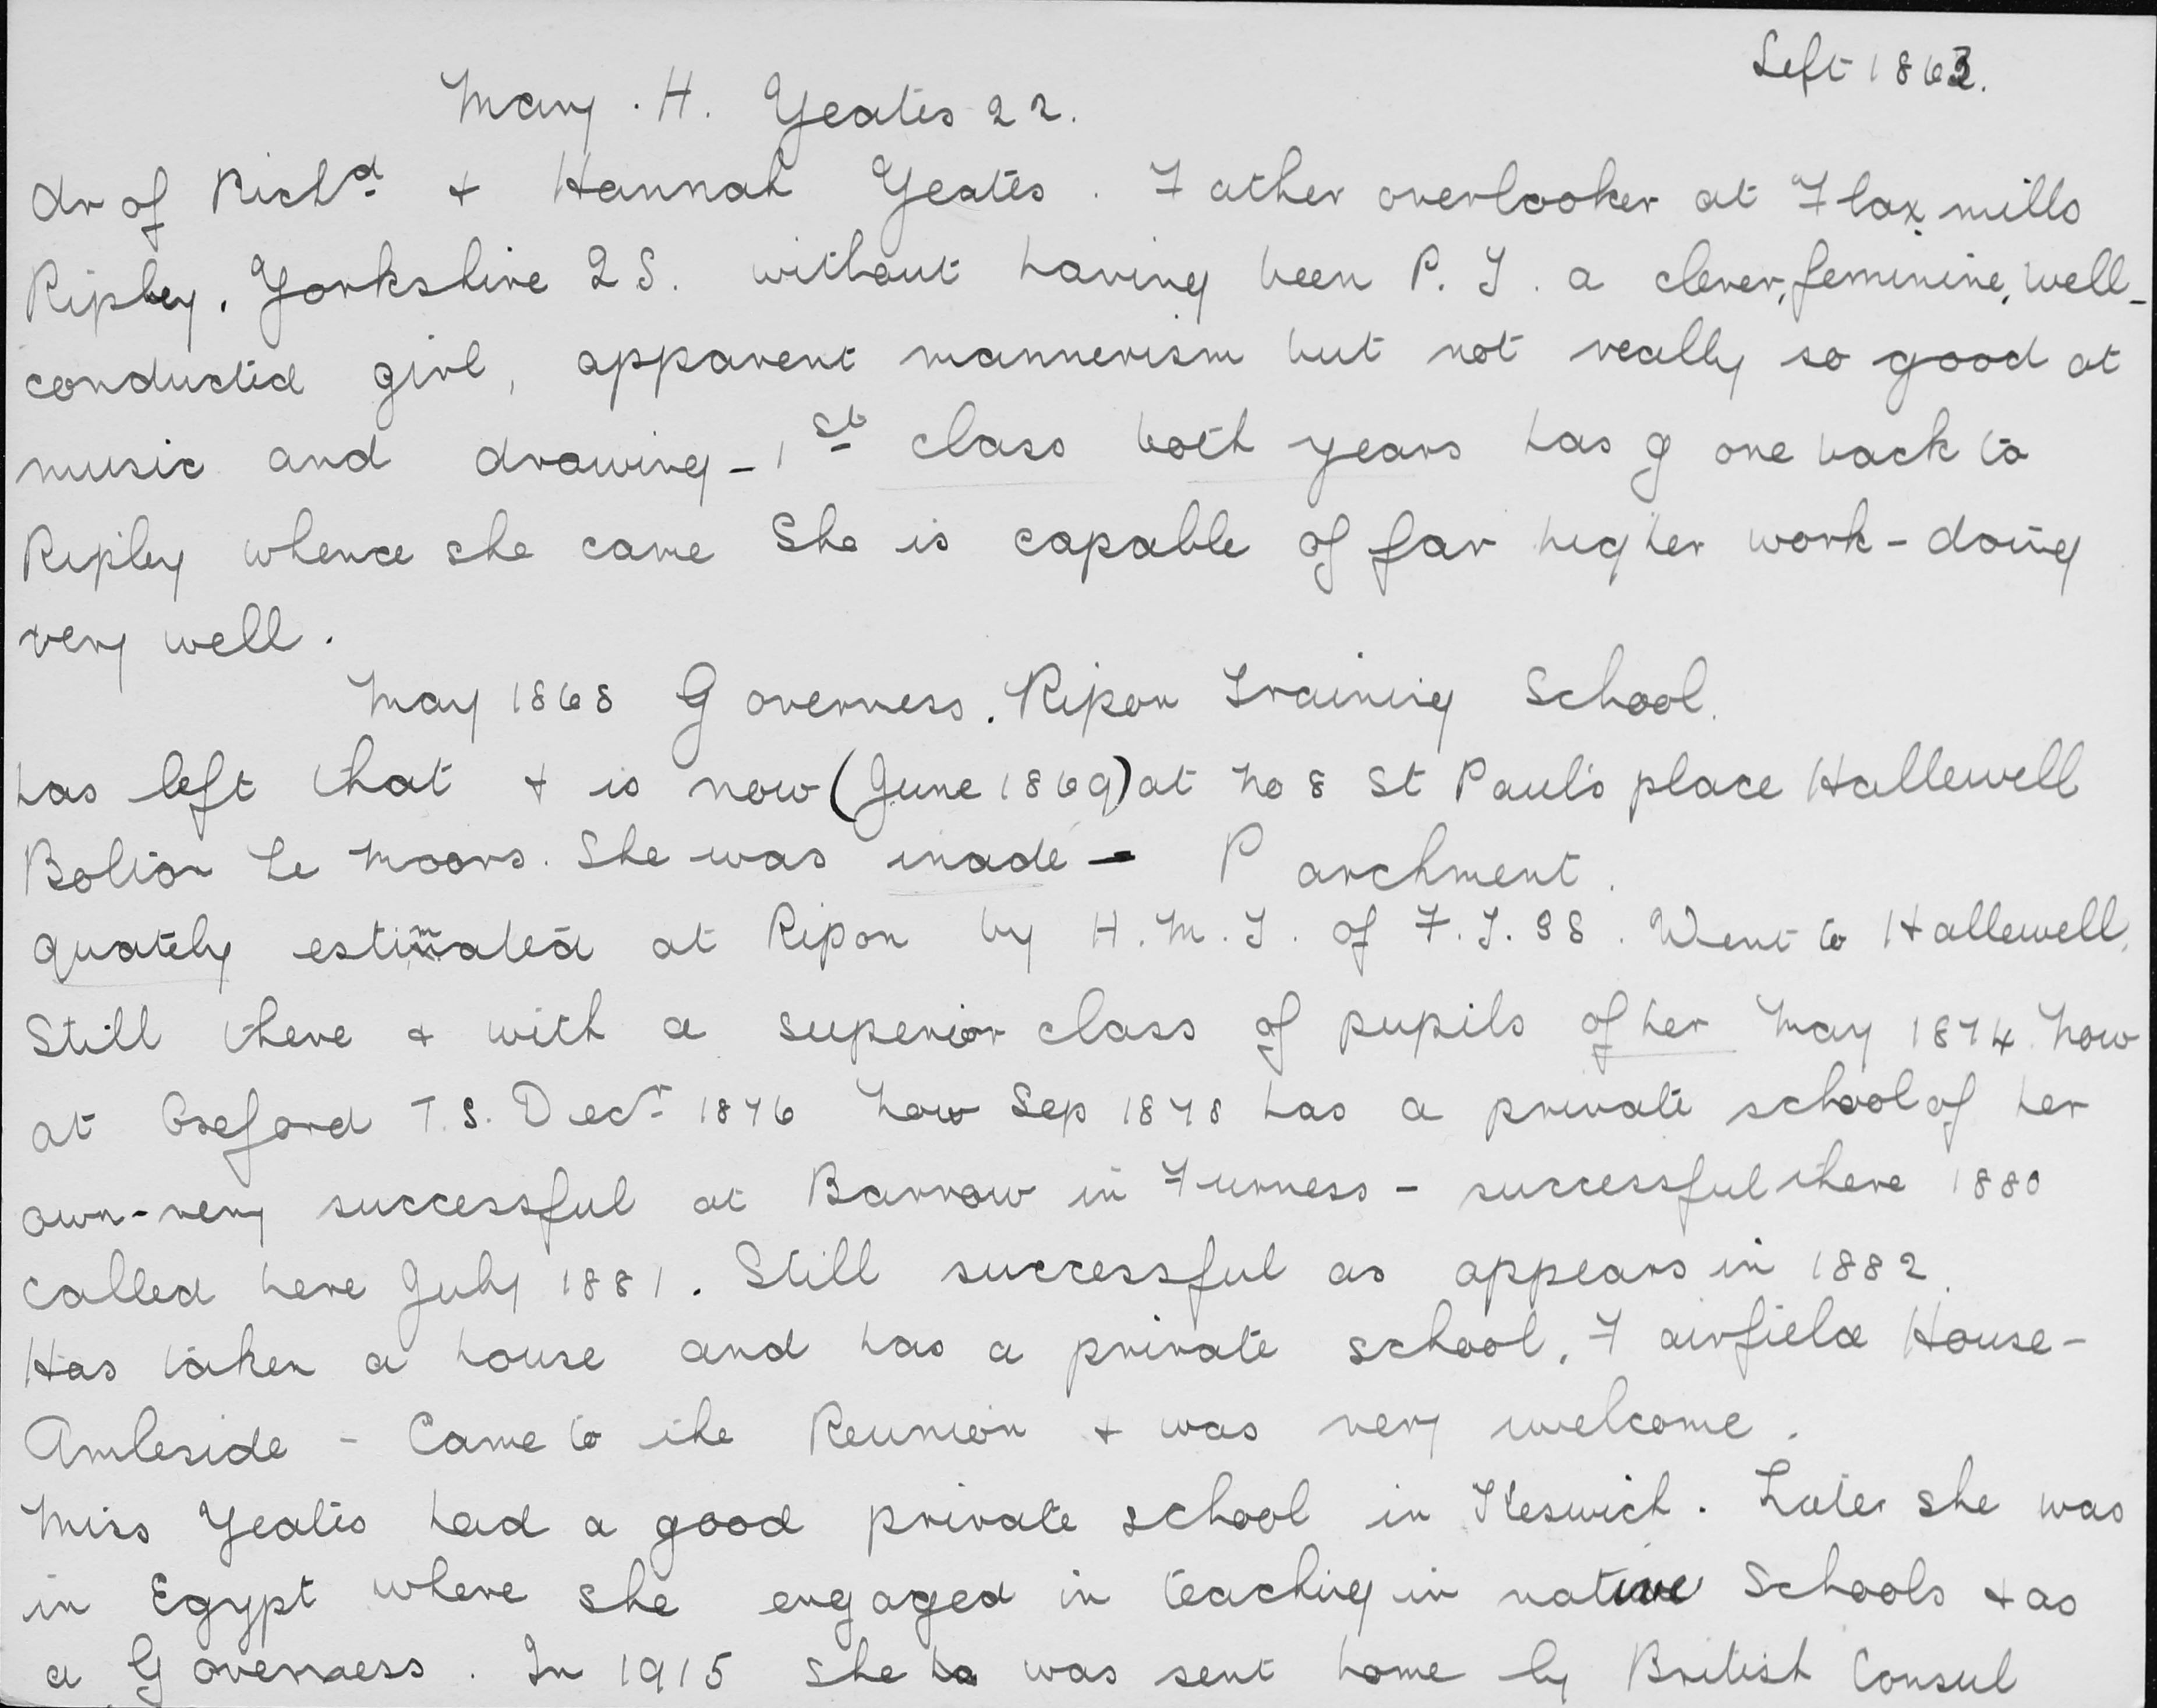 Left 1863.
Mary . H. Yeates 22.
dr of Richd & Hannah Yeates . Father overlooker at Flax mills
Ripley. Yorkshire 2 S. without having been P. T. a clever, feminine, well-
conducted girl, apparent mannerism but not really so good at
music and drawing - 1st class both years has gone back to
Ripley whence she came She is capable of far higher work - doing
very well.
May 1868 Governess. Ripon Training School.
has left that & is now (June 1869) at No 8 St Paul's place Hallewell
Bolton Le Moors. She was inade - Parchment.
quately estimated at Ripon by H. M. I. of F. T. SS. Went to Hallewell.
Still there & with a superior class of pupils of her May 1874 Now
at Oxford T.S. Decr 1876 Now Sep 1878 has a private school of her
own - very successful at Barrow in Furness - successful there 1880
called here July 1881. Still successful as appears in 1882.
Has taken a house and has a private school, Fairfield House -
Ambleside - Came to the Reunion & was very welcome.
Miss Yeates had a good private school in Keswick. Later she was
in Egypt where she engaged in teaching in native Schools & as
a Governess. In 1915 she was sent home by British Consul